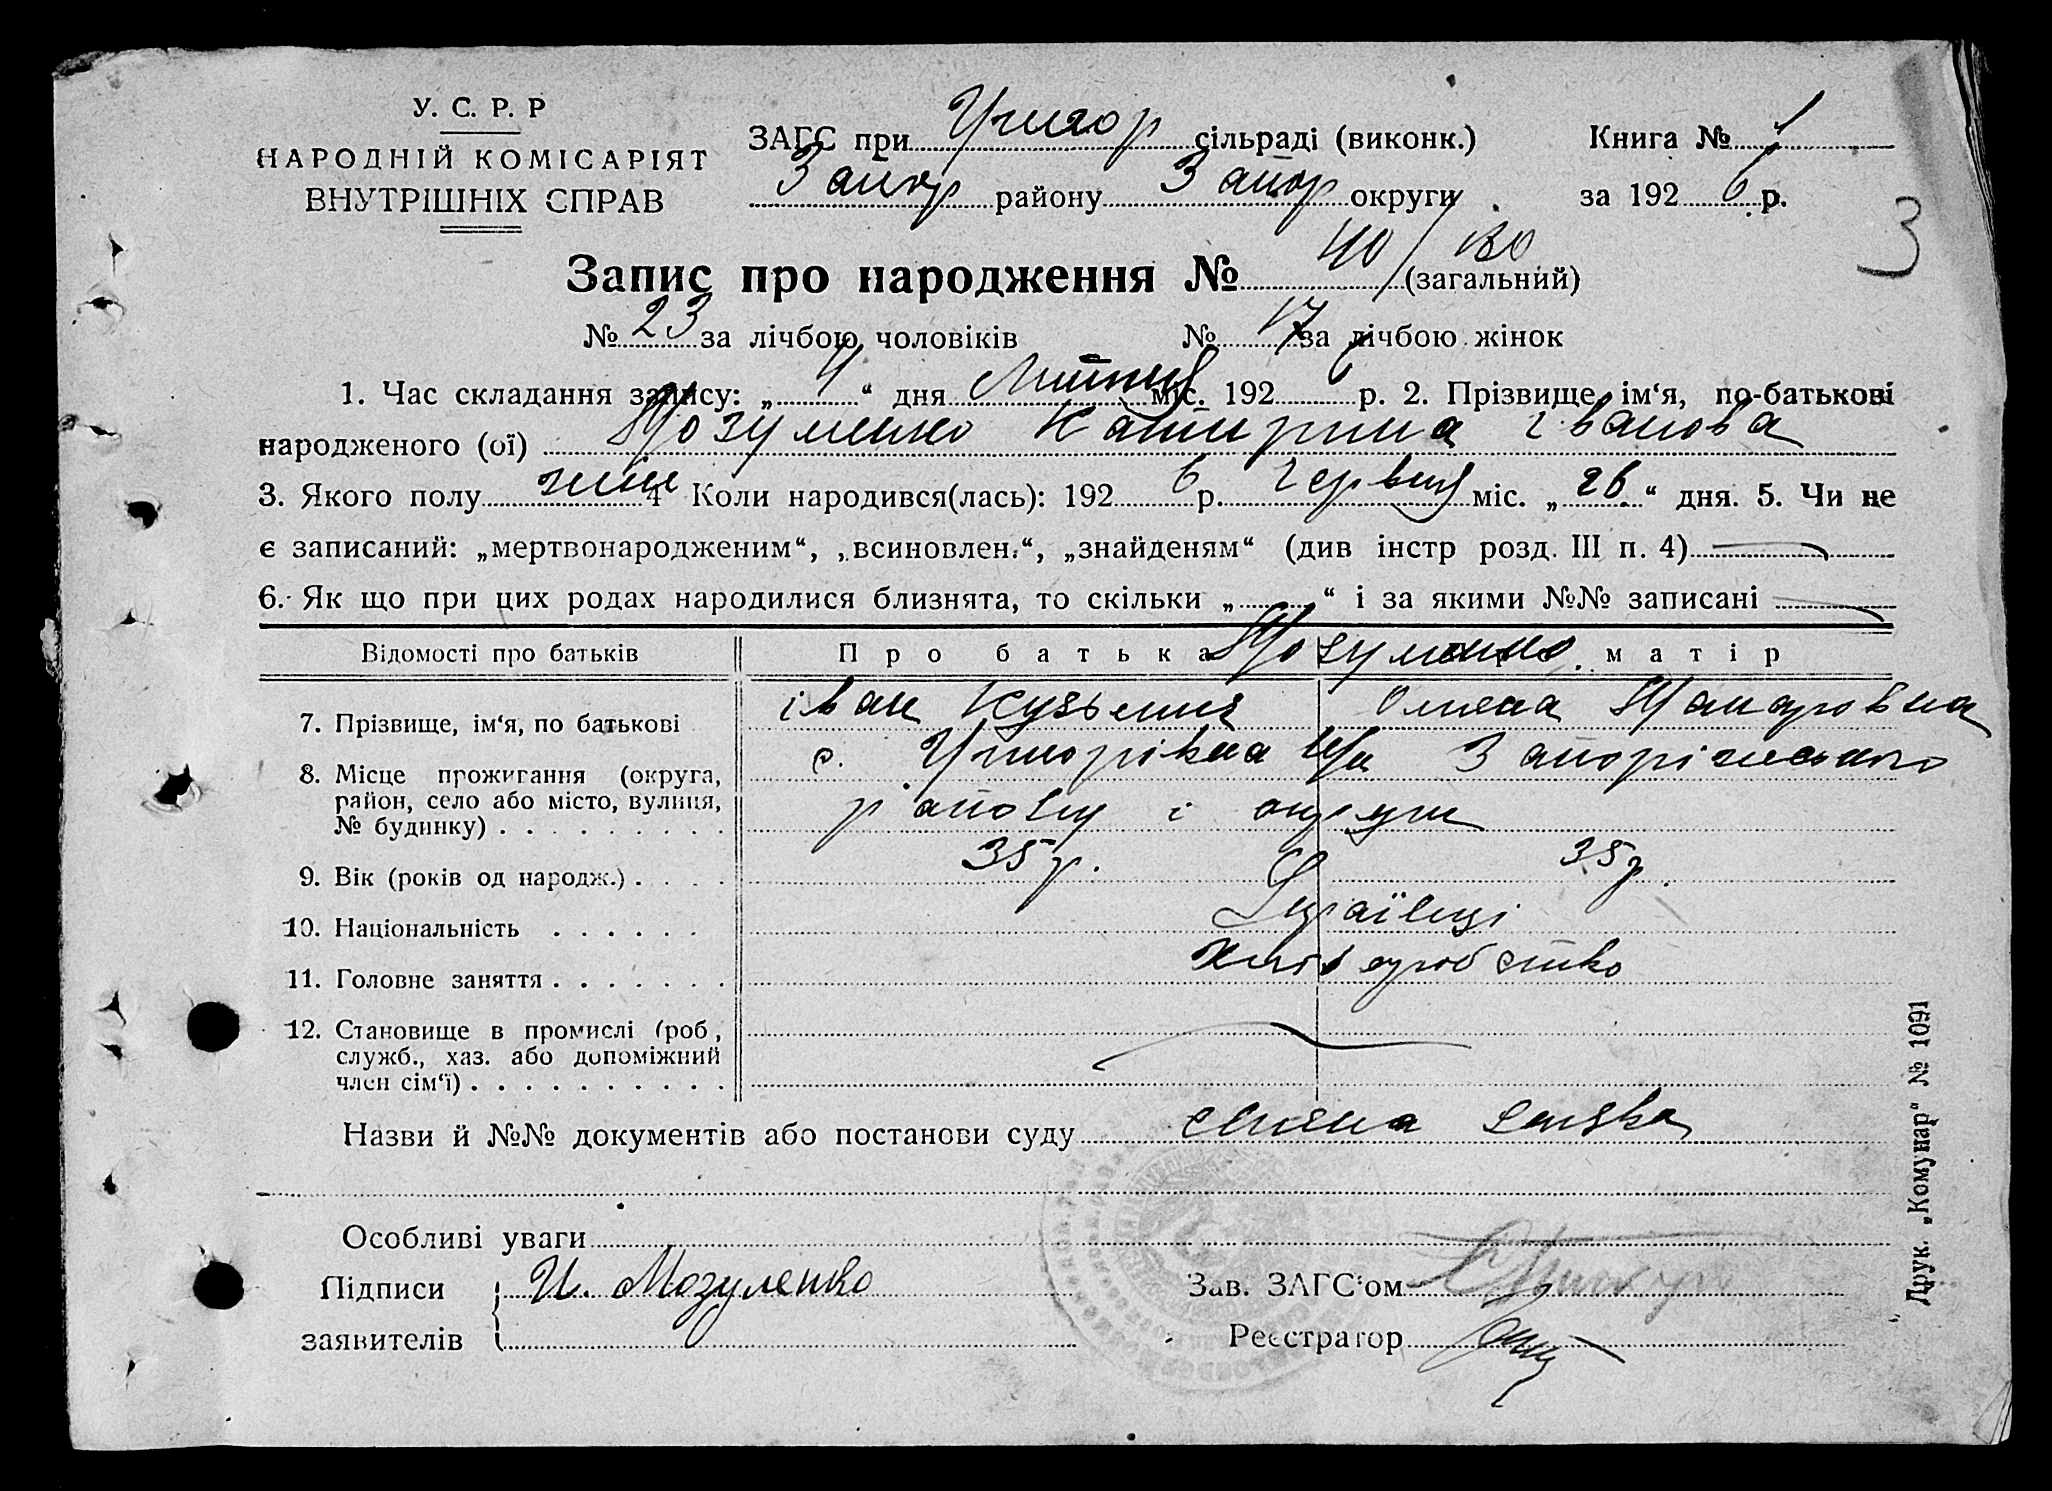 У. С. Р. Р
НАРОДНІЙ КОМІСАРІЯТ
ВНУТРІШНІХ СПРАВ
ЗАГС при сільраді (виконк.) Книга № 1
Запор району Запор округи за 1926 р.
3
Запис про народження № 40/ (загальний)
№ 23 за лічбою чоловіків № 17 за лічбою жінок
1. Час складання запису: „4“ дня Липня міс. 1926 р. 2. Прізвище, ім‘я, по-батькові
народженого (ої) Мозуленко Катирина Іванова
3. Якого полу жін 4 Коли народився(лась): 1926 р. Червня міс. „26“ дня. 5. Чи не
є записаний: „мертвонародженим“, „всиновлен.“, „знайденям“ (див інстр розд. III п. 4)
6. Як що при цих родах народилися близнята, то скільки „ “ і за якими №№ записані
Відомості про батьків Про батька Мозуленко матір
7. Прізвище, ім‘я, по батькові іван Кузьмич Олена
8. Місце прожигання (округа, район, село або місто, вулиця, № будинку) с. Запоріжського
району і округи
9. Вік (років од народж.) 35 р. 35 р.
10. Національність Українці
11. Головне заняття Хліборобство
12. Становище в промислі (роб, служб., хаз. або допоміжний член сім‘ї)
Назви й №№ документів або постанови суду заява
Особливі уваги
Підписи И. Мозуленко Зав. ЗАГС‘ом
заявителів Реєстратор
Друк. „Комунар“ № 1091